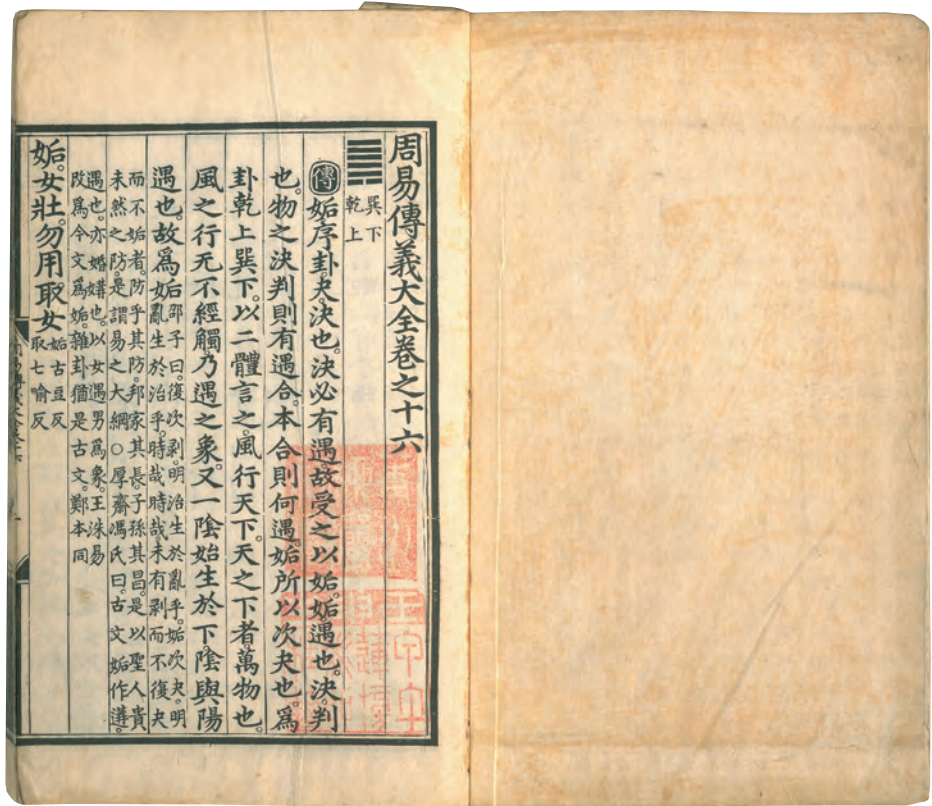 周易傳義大全卷之十六
巽下
乾上
傳 姤序卦夬決也。決必有遇。故受之以姤。姤遇也。決判
也。物之決判則有遇合。本合則何遇。姤所以次夬也。爲
卦乾上巽下。以二體言之。風行天下。天之下者。萬物也。
風之行无不經觸。乃遇之象。又一陰始生於下。陰與陽
遇也。故爲姤。
邵子曰。復次剥。明治生於亂乎。姤次夬。明
亂生於治乎。時哉時哉。未有剥而不復。夬
而不姤者。防乎其防。邦家其長。子孫其昌。是以聖人貴
未然之防。是謂易之大綱○厚齋馮氏曰。古文姤作遘。
遇也。亦婚媾也。以女遇男爲象。王洙易
改爲今文爲姤。雜卦猶是古文。鄭本同
姤。女壯。勿用取女。
姤古豆反
取七喻反